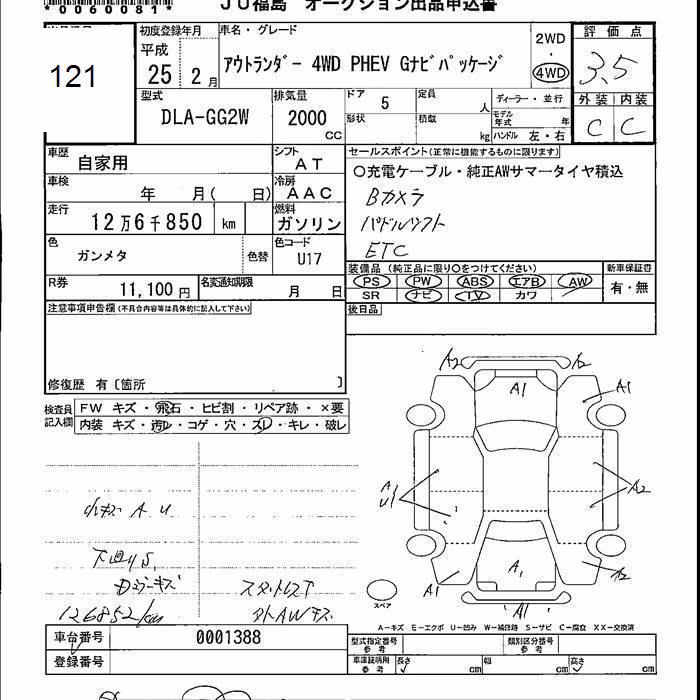 *0060081*
JU福島 オークション出品申込書
121
初度登録年月
平成
25 2 月
車名・グレード
アウトランダー 4WD PHEV Gナビパッケージ
2WD
・
4WD
評価点
3.5
外装 内装
C C
型式
DLA-GG2W
排気量
2000
CC
ドア
5
定員
人
ディーラー・並行
形状
積載
kg
モデル年式
年
ハンドル 左・右
車歴
自家用
シフト
AT
セールスポイント(正常に機能するものに限ります)
○充電ケーブル・純正AWサマータイヤ積込
Bカメラ
パドルシフト
ETC
車検
年 月( 日)
冷房
AAC
走行
12万6千850 km
燃料
ガソリン
色
ガンメタ
色替
色コード
U17
装備品 (純正品に限り○をつけてください)
PS PW ABS エアB AW
SR ナビ TV カワ
新車保証書
有・無
R券
11,100 円
名変通知期限
月 日
後日品
注意事項申告欄(不具合内容等は具体的に記入して下さい)
修復歴 有〔箇所 〕
検査員
記入欄
FW キズ・飛石・ヒビ割・リペア跡・×要
内装 キズ・汚レ・コゲ・穴・スレ・キレ・破レ
小キズ A. U
下廻りS
126852km
スタットレスT
A2 A2
A1
A1
A
U1
A2
A1
A1
A2
A1
スペア
A-キズ E-エクボ U-凹み W-補修跡 S-サビ C-腐食 XX-交換済
車台番号
0001388
登録番号
型式指定番号
参考
類別区分番号
参考
車庫証明用
参考
長さ cm 幅 cm 高さ cm